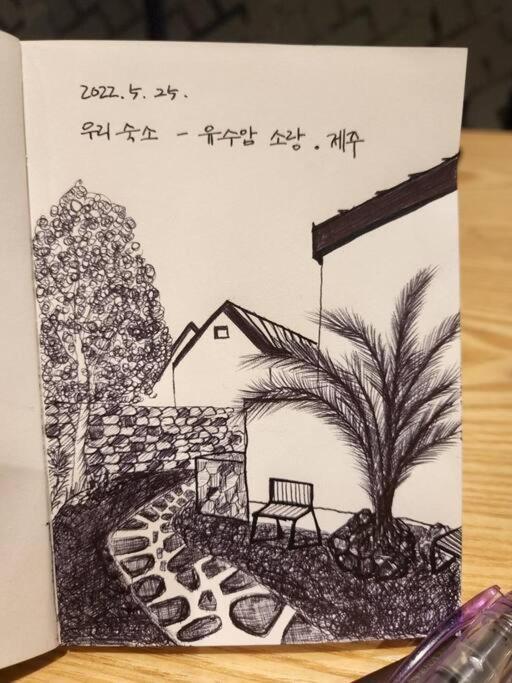 2022. 5. 25.
우리 숙소 - 유수암 소랑. 제주